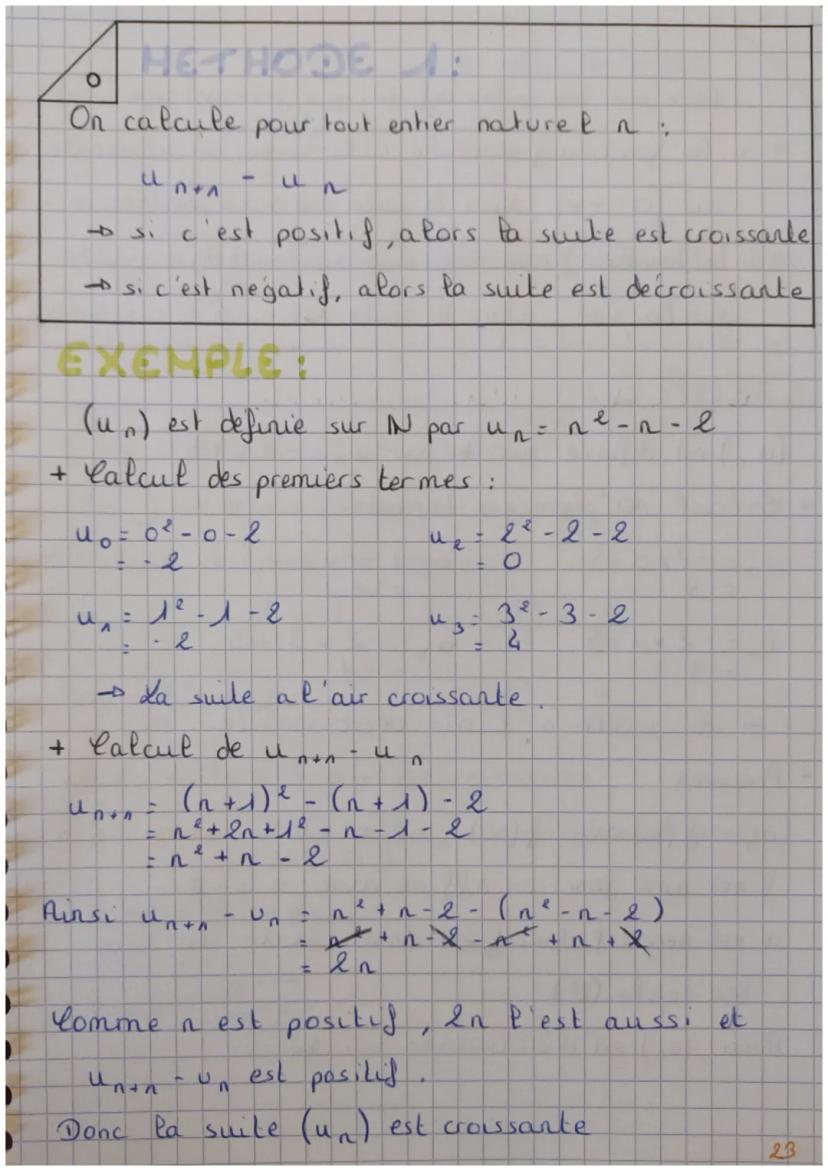 METHODE 1:
On calcule pour tout entier naturel n :
u n+1 - u n
→ si c'est positif, alors la suite est croissante
→ si c'est négatif, alors la suite est décroissante
EXEMPLE :
(un) est définie sur ℕ par un = n² - n - 2
+ Calcul des premiers termes :
u0 = 0² - 0 - 2 u2 = 2² - 2 - 2
= - 2 = 0
u1 = 1² - 1 - 2 u3 = 3² - 3 - 2
= - 2 = 4
→ La suite a l'air croissante.
+ Calcul de u n+1 - u n
u n+1 = (n+1)² - (n+1) - 2
= n² + 2n + 1² - n - 1 - 2
= n² + n - 2
Ainsi u n+1 - un = n² + n - 2 - (n² - n - 2)
= n² + n - 2 - n² + n + 2
= 2n
Comme n est positif, 2n l'est aussi et
u n+1 - un est positif.
Donc la suite (un) est croissante
23